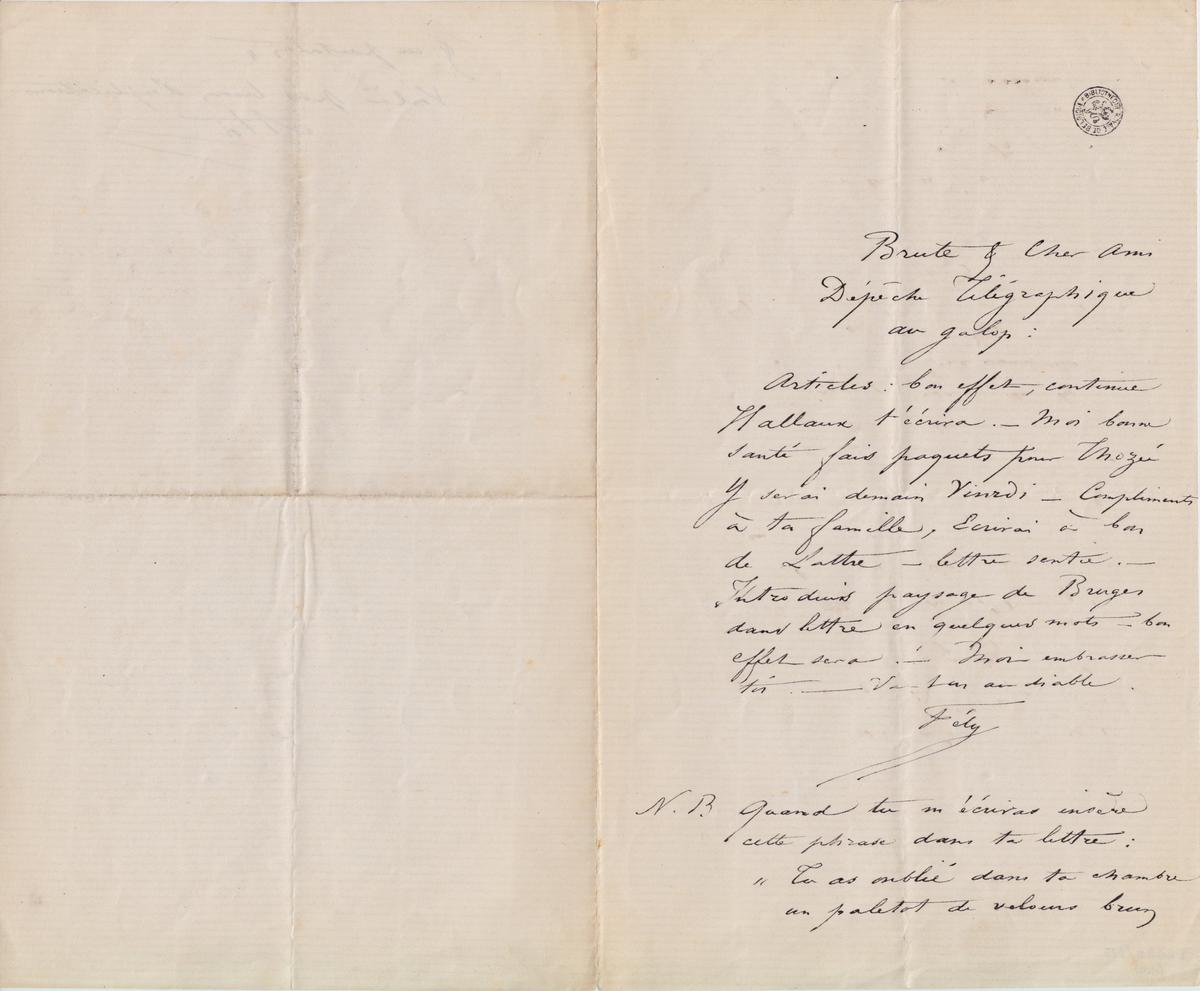 Brute & Cher Ami
Dépêche Télégraphique
au galop :
Articles : bon effet, continue
Hallaux t'écrira. — Moi bonne
santé fais paquets pour Thozée
Y serai demain Vinrdi — Compliments
à ta famille, Ecrirai à bon
de Lattre — lettre sentie. —
Introduis paysage de Bruges
dans lettre en quelques mots — bon
effet sera ! — Moi embrasser
toi. — Va-t-en au diable.
Fély
N. B Quand tu m'écriras insère
cette phrase dans ta lettre :
" Tu as oublié dans ta chambre
un paletot de velours brun